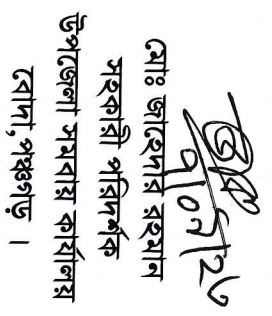 মোঃ জাহেদার রহমান
সহকারী পরিদর্শক
উপজেলা সমবায় কার্যালয়
বোদা, পঞ্চগড় ।